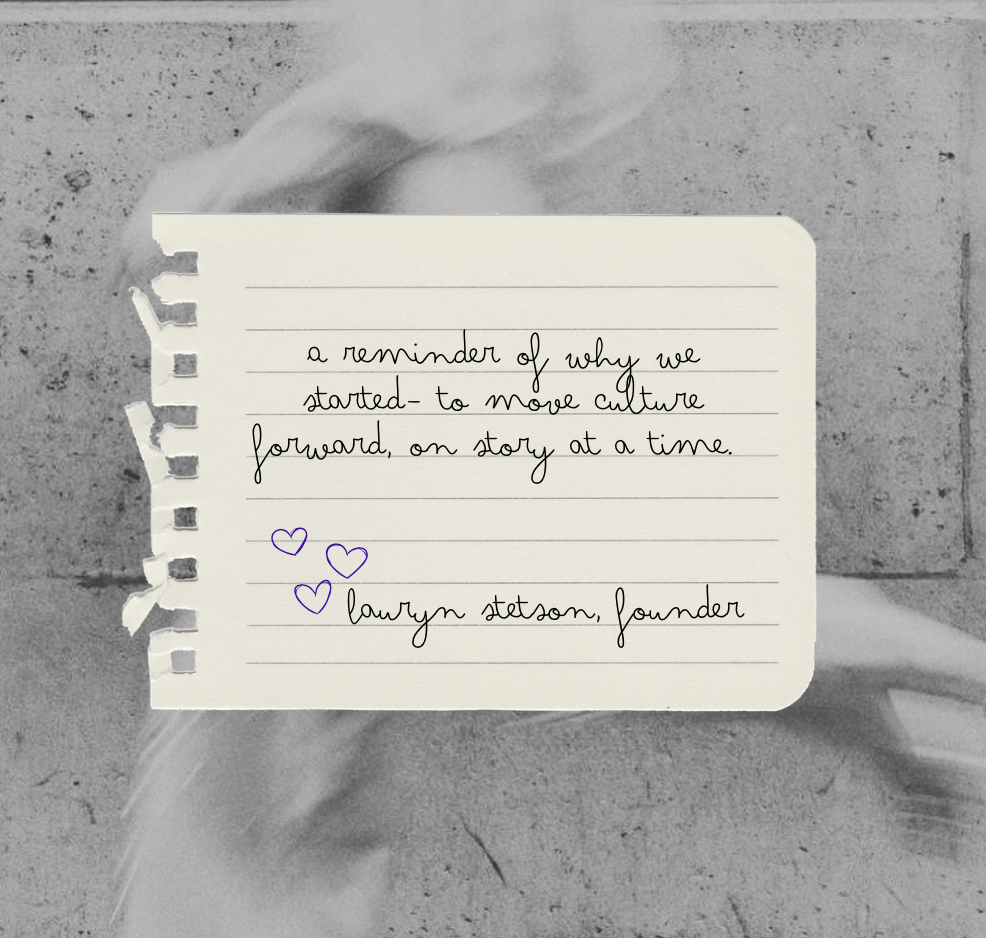 a reminder of why we
started- to move culture
forward, on story at a time.
lauryn stetson, founder